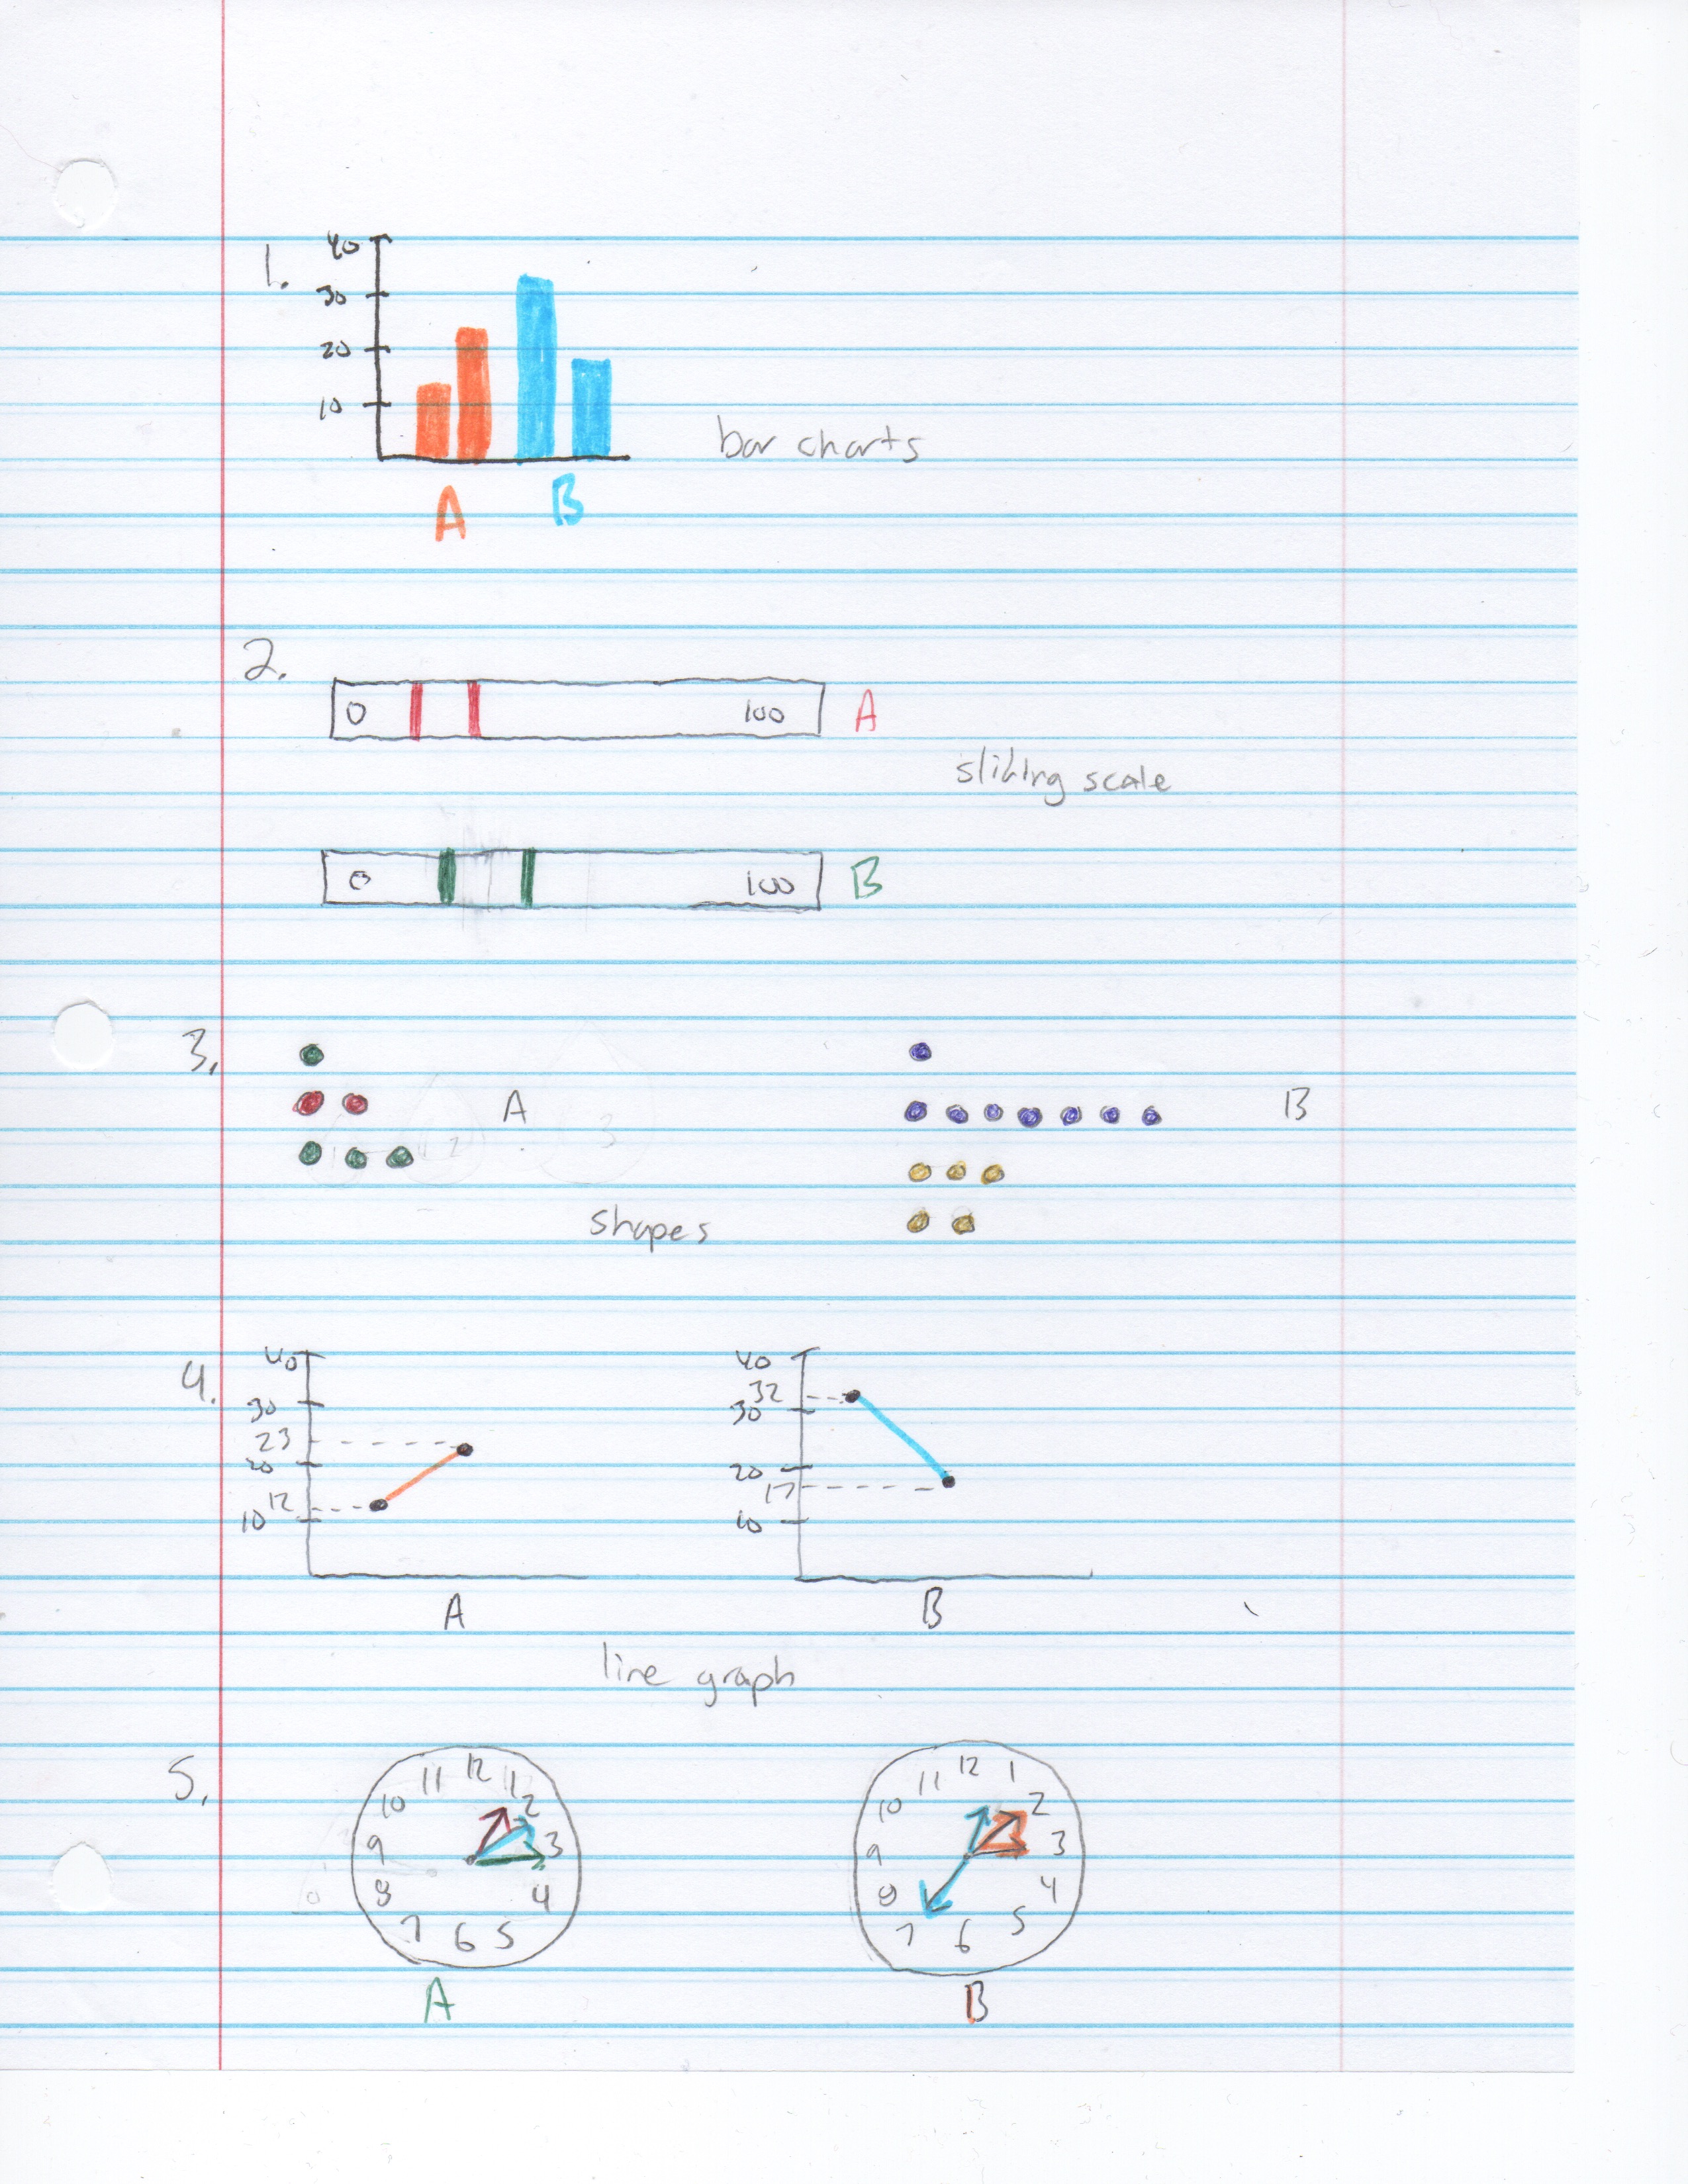 1.
40
30
20
10
A B
bar charts
2.
0 100 A
sliding scale
0 100 B
3.
A B
shapes
4.
40
30
23
20
12
10
A
40
32
30
20
17
10
B
line graph
5.
12 1 2 3 4 5 6 7 8 9 10 11
A
12 1 2 3 4 5 6 7 8 9 10 11
B